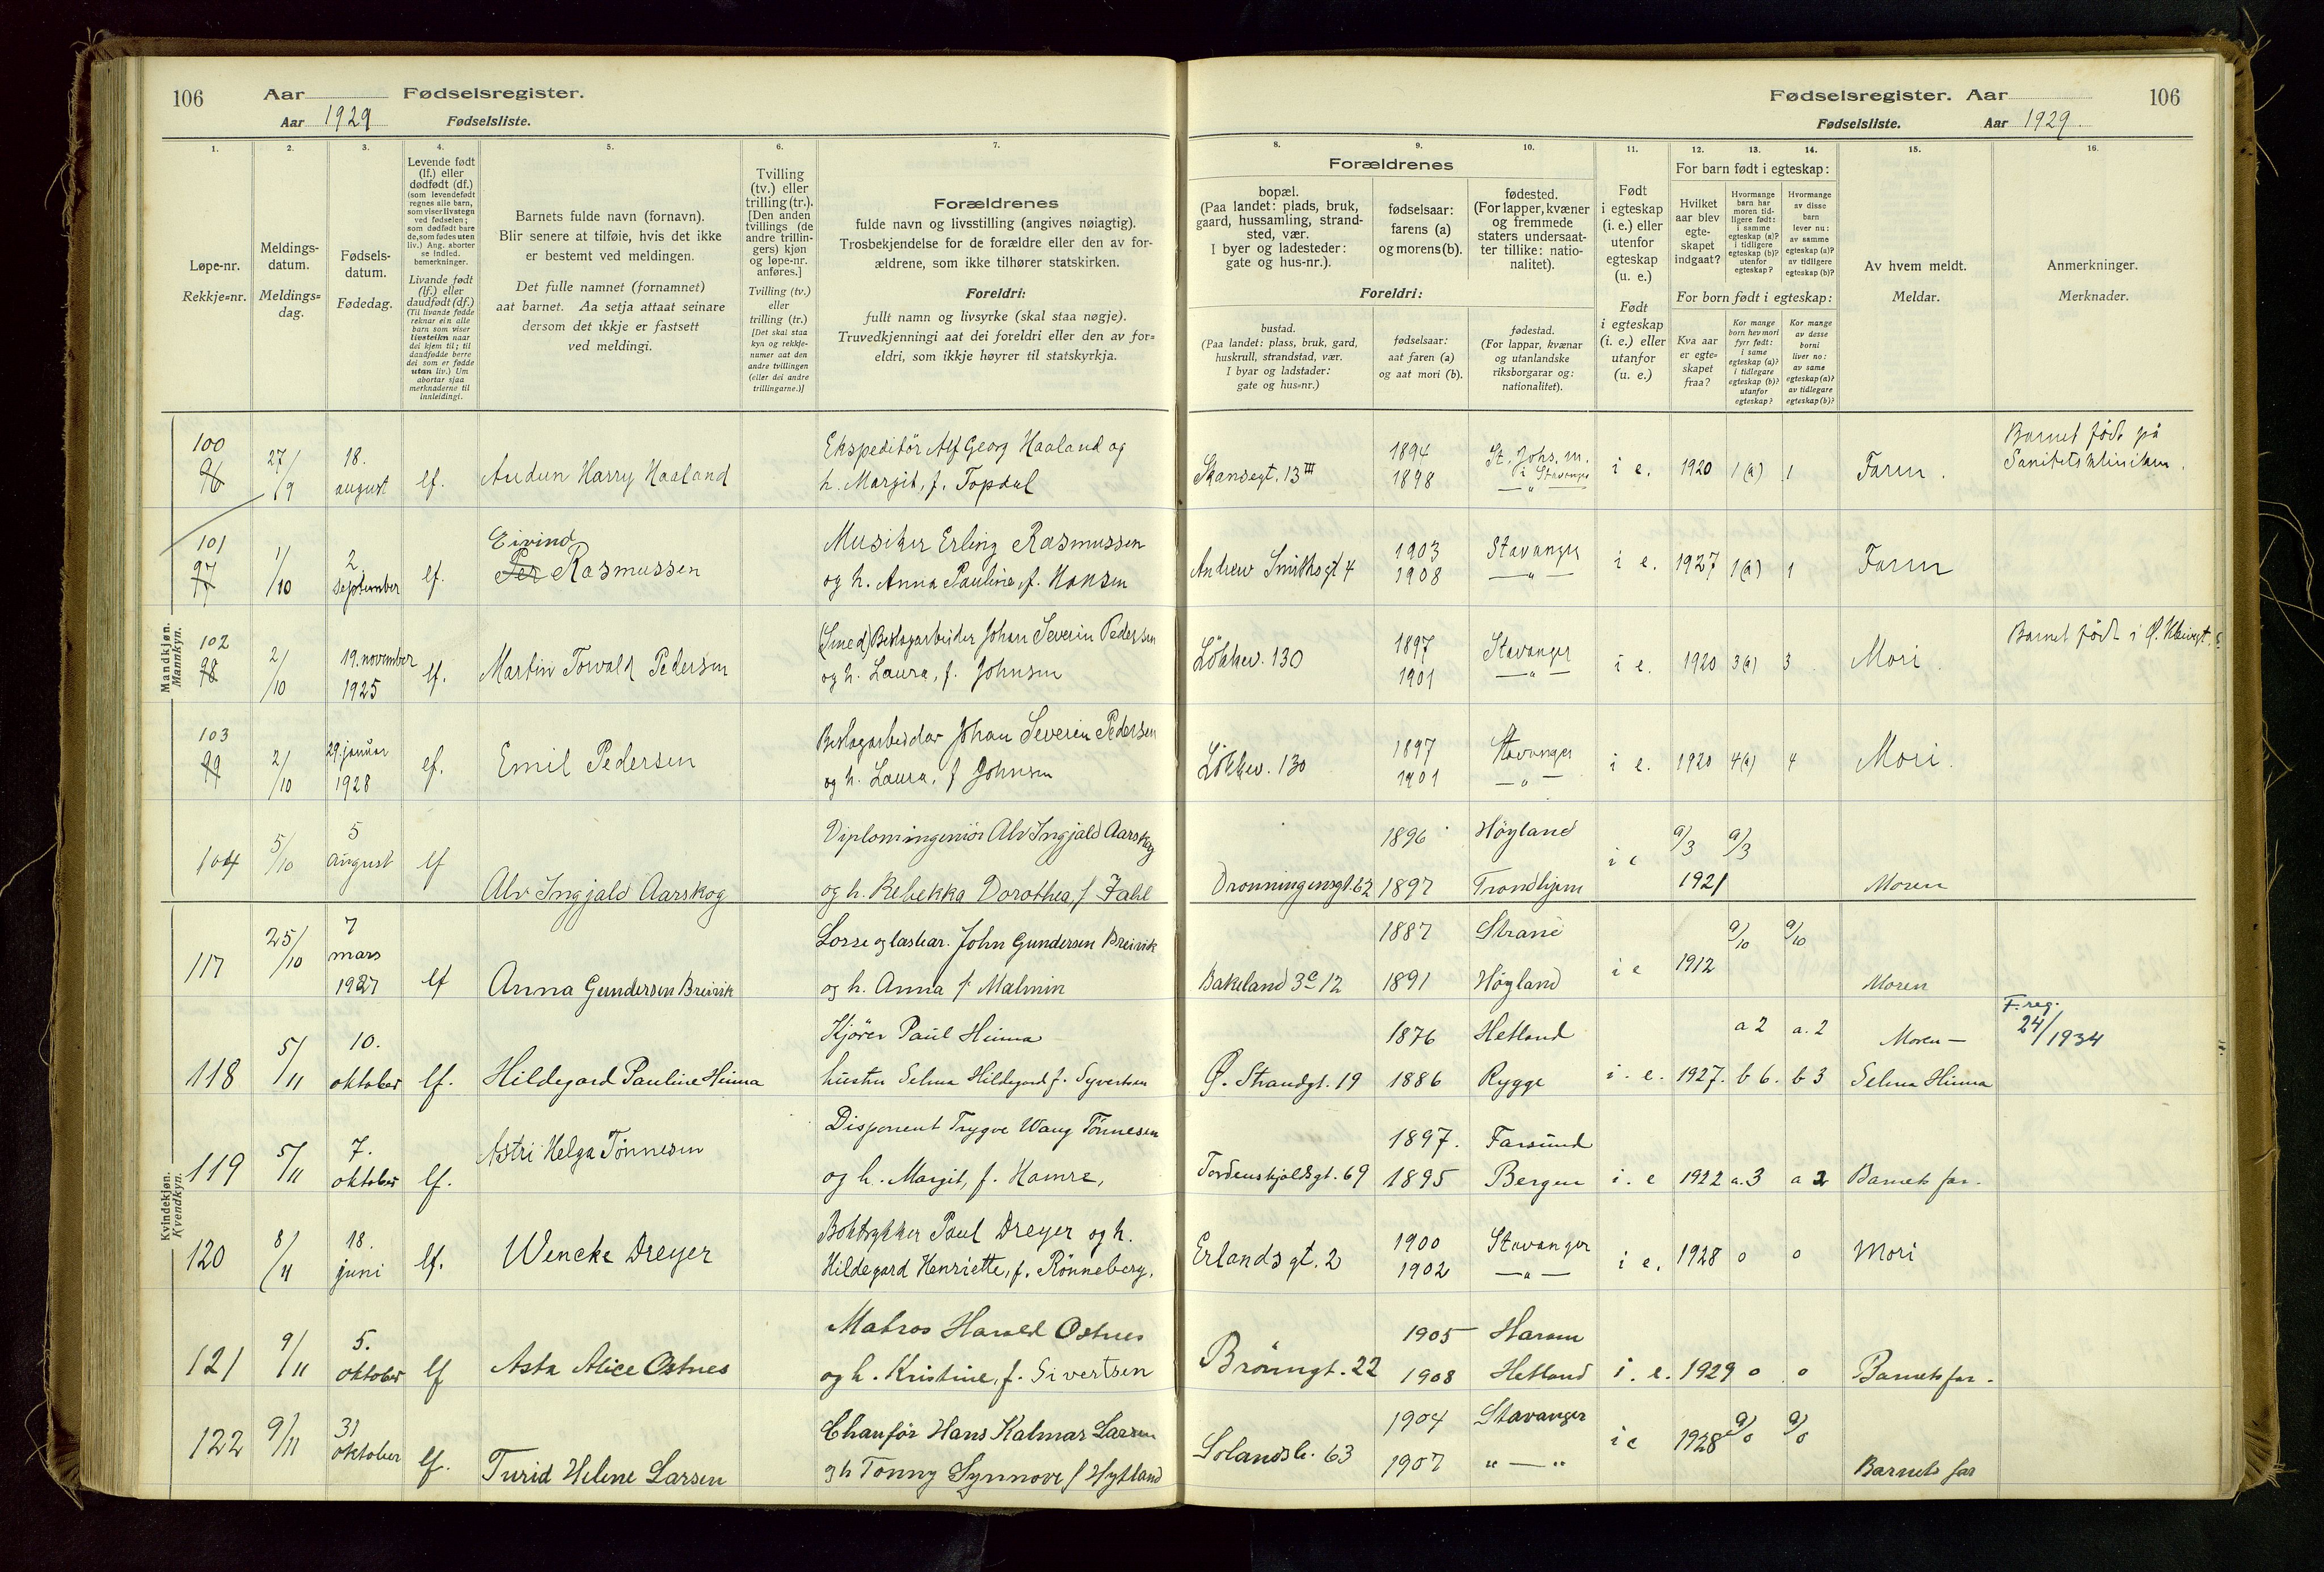 106 Aar Fødselsregister.
Aar 1929 Fødselsliste.
Fødselsregister. Aar 106
Fødselsliste. Aar 1929.
1. 2. 3. 4. 5. 6. 7.
Løpe-nr.
Rekkje=nr.
Meldings-
datum.
Meldings=
dag.
Fødsels-
datum.
Fødedag.
Levende født
(lf.) eller
dødfødt (df.)
(som levendefødt
regnes alle barn,
som viser livstegn
ved fødselen;
som dødfødt bare
de, som fødes uten
liv.) Ang. aborter
se indled.
bemerkninger.
Livande født
(lf.) eller
daudfødt (df.)
(Til livande fødde
reknar ein alle
born som viser
livsteikn naar
dei kjem til; til
daudfødde berre
dei som er fødde
utan liv.) Um
abortar sjaa
merknaderne til
innleidingi.
Barnets fulde navn (fornavn).
Blir senere at tilføie, hvis det ikke
er bestemt ved meldingen.
Det fulle namnet (fornamnet)
aat barnet. Aa setja attaat seinare
dersom det ikkje er fastsett
ved meldingi.
Tvilling
(tv.) eller
trilling (tr.).
[Den anden
tvillings (de
andre trillin-
gers) kjøn
og løpe-nr.
anføres.]
Tvilling (tv.)
eller
trilling (tr.)
[Det skal staa
kyn og rekkje-
numer aat den
andre tvillingen
(eller dei andre
trillingarne.)]
Forældrenes
fulde navn og livsstilling (angives nøiagtig).
Trosbekjendelse for de forældre eller den av for-
ældrene, som ikke tilhører statskirken.
Foreldri:
fullt namn og livsyrke (skal staa nøgje).
Truvedkjenningi aat dei foreldri eller den av for=
eldri, som ikkje høyrer til statskyrkja.
8. 9. 10. 11. 12. 13. 14. 15. 16.
Forældrenes
bopæl.
(Paa landet: plads, bruk,
gaard, hussamling, strand-
sted, vær.
I byer og ladesteder:
gate og hus-nr.).
fødselsaar:
farens (a)
og morens (b).
fødested.
(For lapper, kvæner
og fremmede
staters undersaat-
ter tillike: natio-
nalitet).
Foreldri:
bustad.
(Paa landet: plass, bruk, gard,
huskrull, strandstad, vær.
I byar og ladstader:
gate og hus=nr.)
fødselsaar:
aat faren (a)
og aat mori (b).
fødestad.
(For lappar, kvænar
og utanlandske
riksborgarar og:
nationalitet).
Født
i egteskap
(i. e.) eller
utenfor
egteskap
(u. e.)
Født
i egteskap
(i. e.) eller
utanfor
(u. e.)
For barn født i egteskap:
Hvilket
aar blev
egte-
skapet
indgaat?
Hvormange
barn har
moren tid-
ligere født:
i samme
egteskap (a)?
i tidligere
egteskap (b)?
utenfor
egteskap?
Hvormange
av disse
barn
lever nu:
av samme
egteskap (a)?
av tidligere
egteskap (b)?
For born født i egteskap:
Kva aar
er egte=
skapet
fraa?
Kor mange
born hev mori
fyrr født:
i same
egteskap (a)?
i tidlegare
egteskap (b)?
utanfor
egteskap?
Kor mange
av desse
borni
liver no:
av same
egteskap (a)?
av tidlegare
egteskap (b)?
Av hvem meldt.
Meldar.
Anmerkninger.
Merknader.
Mandkjøn.
Mannkyn.
100 96 27/9 18. august lf. Audun Harry Haaland
Ekspeditör Alf Georg Haaland og
h. Margit, f. Topdal
Skansegt. 13 III 1894 1898 St. Johs. m. i Stavanger — " — i e. 1920 1 (a) 1 Faren.
Barnet født på
Sanitetsklinikken.
101 97 1/10 2 september lf. Eivind
Per Rasmussen
Musiker Erling Rasmussen
og h. Anna Pauline, f. Hansen
Andrew Smithsgt 4 1903 1908 Stavanger — " — i e. 1927 1 (a) 1 Faren
102 98 2/10 19. november 1925 lf. Martin Torvald Pedersen
(Smed) Beslagarbeider Johan Severin Pedersen
og h. Laura, f. Johnsen
Lökkev. 130 1897 1901 Stavanger — " — i e. 1920 3 (a) 3 Mori.
Barnet født i Ø. Kleivgt.
103 99 2/10 29. januar 1928 lf. Emil Pedersen
Beslagarbeidar Johan Severin Pedersen
og h. Laura, f Johnsen
Lökkev. 130 1897 1901 Stavanger — " — i e. 1920 4 (a) 4 Mori.
104 5/10 5 august lf Alv Ingjald Aarskog
Diplomingeniör Alv Ingjald Aarskog
og h. Rebekka Dorothea, f Fahl
Dronningensgt. 62 1896 1897 Höyland Trondhjem i e 1921 a/3 a/3 Moren
Kvindekjøn.
Kvendkyn.
117 25/10 7 mars 1927 lf Anna Gundersen Breivik
Losse og lastear. John Gundersen Breivik
og h. Anna f. Malmin
Bakeland 3c 12 1887 1891 Strand Höyland i e 1912 a/10 a/10 Moren
118 5/11 10. oktober lf. Hildegard Pauline Hinna
Kjörer Paul Hinna
hustru Selma Hildegard f. Syvertsen
Ø. Strandgt. 19 1876 1886 Hetland Rygge i. e. 1927. a 2 b 6. a. 2 b 3 Moren —
Selma Hinna
F. reg.
24/1934
119 5/11 7. oktober lf. Astri Helga Tönnesen
Disponent Trygve Wang Tönnesen
og h. Margit, f. Hamre,
Tordenskjoldsgt. 69 1897. 1895 Farsund Bergen i. e 1922 a. 3 a 2 Barnets far.
120 8/11 18. juni lf. Wencke Dreyer
Boktrykker Paul Dreyer og h.
Hildegard Henriette, f. Rönneberg.
Erlandsgt. 2 1900 1902 Stavanger — " — i e. 1928 0 0 Mori
121 9/11 5. oktober lf Asta Alice Ostnes
Matros Harald Ostnes
og h. Kristine, f. Sivertsen
Brönngt. 22 1905 1908 Haram Hetland i. e. 1929 0 0 Barnets far.
122 9/11 31 oktober lf. Turid Helene Larsen
Chauför Hans Kalmar Larsen
og h Tonny Synnove f Hytland
Solandsb. 63 1904 1907 Stavanger " — " i e 1928 a/0 a/0 Barnets far